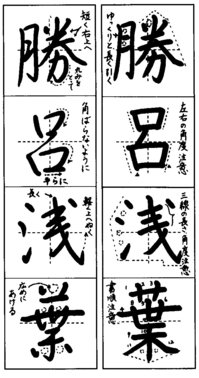 勝
ゆっくりと長く引く
呂
左右の角度注意
浅
三線の長さ角度注意
葉
書順注意
勝
短く右上へ
丸みをとって
呂
角ばらないように
平らに
浅
長く
軽く上へぬく
葉
広めにあける